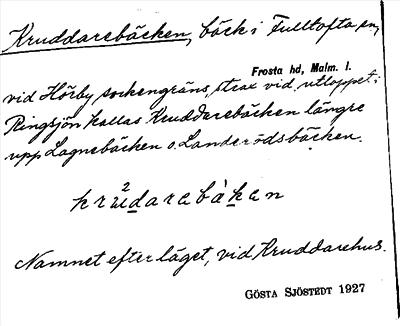 Kruddarebäcken, bäck i Fulltofta sn,
Frosta hd, Malm. l.
vid Hörby sockengräns, strax vid utloppet i
Ringsjön kallas Kruddarebäcken längre
upp Lagnebäcken o. Landerödsbäcken.
krudarebàkan
Namnet efter läget, vid Kruddarehus.
GÖSTA SJÖSTEDT 1927